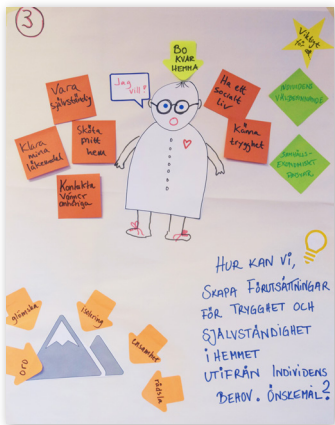 3
BO
KVAR
HEMMA
Viktigt
för
Jag
vill!
Vara
självständig
Klara
mina
läkemedel
Sköta
mitt
hem
Kontakta
vänner
anhöriga
Ha ett
socialt
liv
Känna
trygghet
INDIVIDENS
SAMHÄLLS-
EKONOMISKT
HUR KAN VI,
SKAPA FÖRUTSÄTTNINGAR
FÖR TRYGGHET OCH
SJÄLVSTÄNDIGHET
I HEMMET
UTIFRÅN INDIVIDENS
BEHOV. ÖNSKEMÅL?
glömska
isolering
ensamhet
oro
rädsla